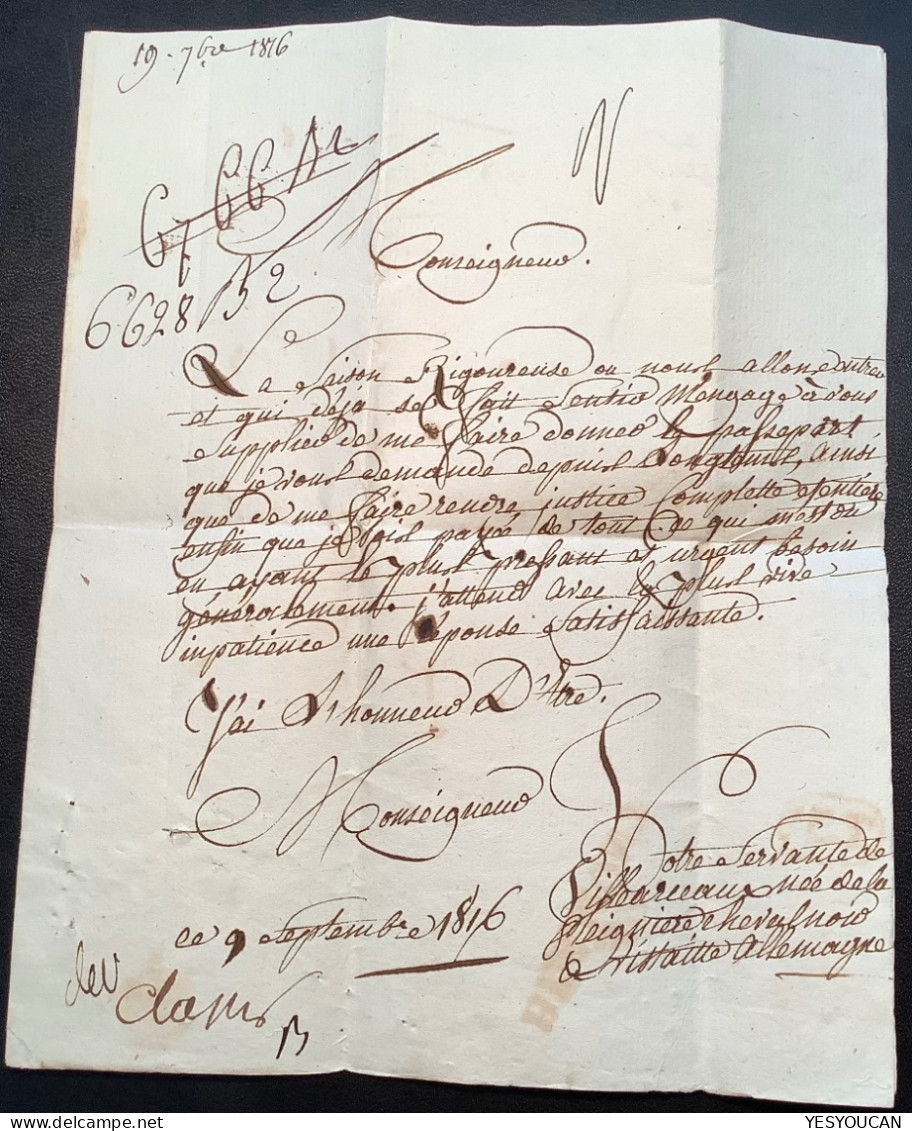 19. 7bre 1816
N
67 66 B2
6628 B2
Monseigneur.
La Saison Rigoureuse ou nous allon entrer
et qui déja se fait sentir M'engage à vous
supplier de me faire donner le passeport
que je vous demande depuis longtems, ainsi
que de me faire rendre justice Complette et entière
enfin que je sois payée de tout Ce qui m'est du
en ayant le plus pressant et urgent besoin
généralement. j'attend avec la plus vive
inpatience une Reponse Satisfaissante.
J'ai L'honneur D'être.
Monséigneur
Votre Servante de
Villarceaux née de la
cheval noir
Allemagne
ce 9 septembre 1816
B
YESYOUCAN